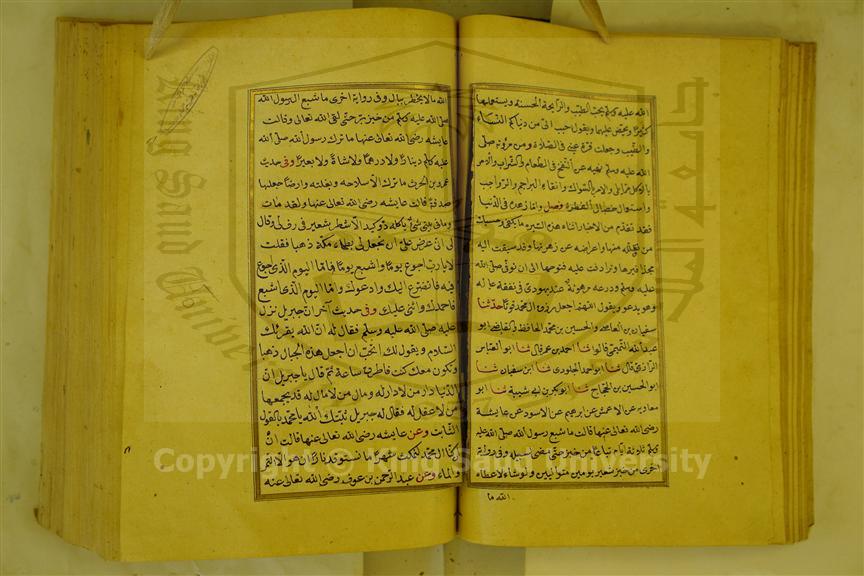 الله عليه وسلم يحب الطيب والرايحة الحسنة ويستعملها
كثيرا ويحض عليهما ويقول حبب الى من دنياكم النساء
والطيب وجعلت قرة عينى فى الصلاة ومن مروته صلى
الله عليه وسلم نهيه عن النفخ فى الطعام والشراب والامر
بالاكل مما يلى والامر بالسواك وانقاء البراجم والرواجب
واستعمال خصال الفطرة فصل واما زهده فى الدنيا
فقد تقدم من الاخبار اثناء هذه السيرة ما يكفى وحسبك
من تقلله منها واعراضه عن زهرتها وقد سيقت اليه
بحذافيرها وترادفت عليه فتوحها الى ان توفى صلى الله
عليه وسلم ودرعه مرهونة عند يهودى فى نفقة عياله
وهو يدعو ويقول اللهم اجعل رزق ال محمد قوتا حدثنا
سفيان بن العاصى والحسين بن محمد الحافظ والقاضى ابو
عبد الله التميمى قالوا ثنا احمد بن عمر قال ثنا ابو العباس
الرازى قال ثنا ابو احمد الجلودى ثنا ابن سفيان ثنا
ابو الحسين بن الحجاج ثنا ابو بكر بن ابى شيبة ثنا ابو
معاوية عن الاعمش عن ابرهيم عن الاسود عن عايشة
رضى الله تعالى عنها قالت ما شبع رسول الله صلى الله عليه
وسلم ثلاثة ايام تباعا من خبز حتى مضى لسبيله وفى رواية
اخرى من خبز شعير يومين متواليين ولو شاء لاعطاه
الله ما
الله ما لا يخطر ببال وفى رواية اخرى ما شبع ال رسول الله
صلى الله عليه وسلم من خبز بر حتى لقى الله تعالى وقالت
عايشة رضى الله تعالى عنها ما ترك رسول الله صلى الله
عليه وسلم دينارا ولا درهما ولا شاة ولا بعيرا وفى حديث
عمرو بن الحرث ما ترك الا سلاحه وبغلته وارضا جعلها
صدقة قالت عايشة رضى الله تعالى عنها ولقد مات
وما فى بيتى شئ ياكله ذو كبد الا شطر شعير فى رف لى وقال
لى انى عرض على ان تجعل لى بطحاء مكة ذهبا فقلت
لا يا رب اجوع يوما واشبع يوما فاما اليوم الذى اجوع
فيه فاتضرع اليك وادعوك واما اليوم الذى اشبع
فاحمدك واثنى عليك وفى حديث آخر ان جبريل نزل
عليه صلى الله عليه وسلم فقال له ان الله يقرئك
السلام ويقول لك اتحب ان اجعل هذه الجبال ذهبا
وتكون معك كنت فاطرق ساعة ثم قال يا جبريل ان
الدنيا دار من لا دار له ومال من لا مال له قد يجمعها
من لا عقل له فقال له جبريل ثبتك الله يا محمد بالقول
الثابت وعن عايشة رضى الله تعالى عنها قالت ان
كنا ال محمد لنمكث شهرا ما نستوقد نارا ان هو الا التمر
والماء وعن عبد الرحمن بن عوف رضى الله تعالى عنه
جامعة الملك سعود
King Saud University
1957
Copyright © King Saud University